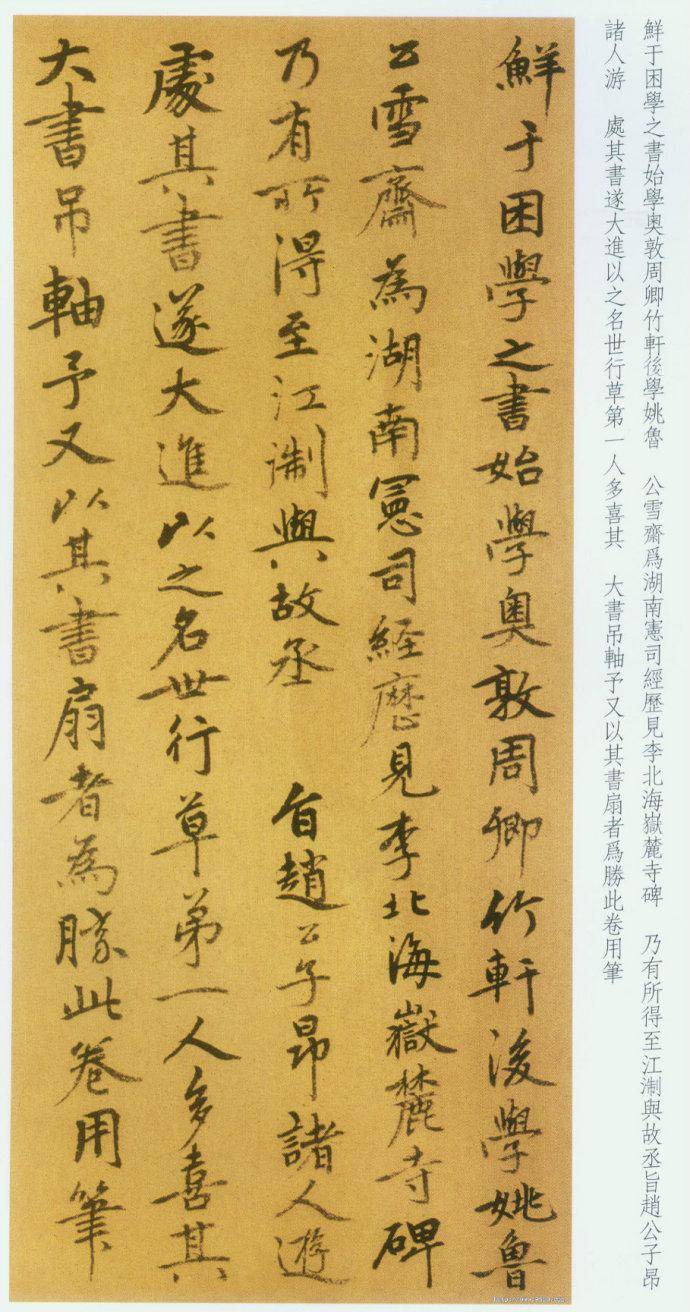 鮮于困學之書始學奧敦周卿竹軒後學姚魯　公雪齋爲湖南憲司經歷見李北海嶽麓寺碑　乃有所得至江淛與故丞旨趙公子昂
諸人游　處其書遂大進以之名世行草第一人多喜其　大書吊軸予又以其書扇者爲勝此卷用筆
鮮于困學之書始學奧敦周卿竹軒後學姚魯
公雪齋為湖南憲司経歷見李北海嶽麓寺碑
乃有所淂至江淛與故丞　旨趙公子昂諸人遊
處其書遂大進以之名世行草弟一人多喜其
大書吊軸予又以其書扇者為勝此卷用筆